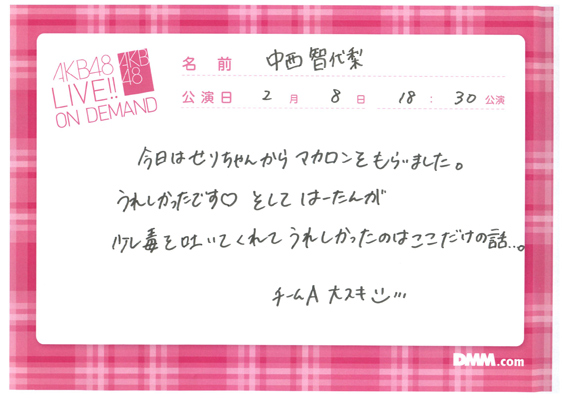 AKB48
LIVE!!
ON DEMAND
AKB
48
名前 中西智代梨
公演日 2月8日 18:30公演
今日はせりちゃんからマカロンをもらいました。
うれしかったです♡ そしてはーたんが
少し毒を吐いてくれてうれしかったのはここだけの話...。
チームA 大スキ
DMM.com